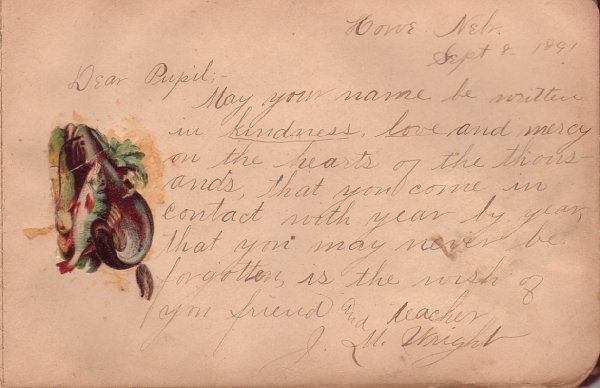 Howe Nebr.
Sept 8 1891
Dear Pupil;-
May your name be written
in kindness, love and mercy
on the hearts of the thous-
ands, that you come in
contact with year by year,
that you may never be
forgotten, is the wish of
you friend and teacher
J. M. Wright